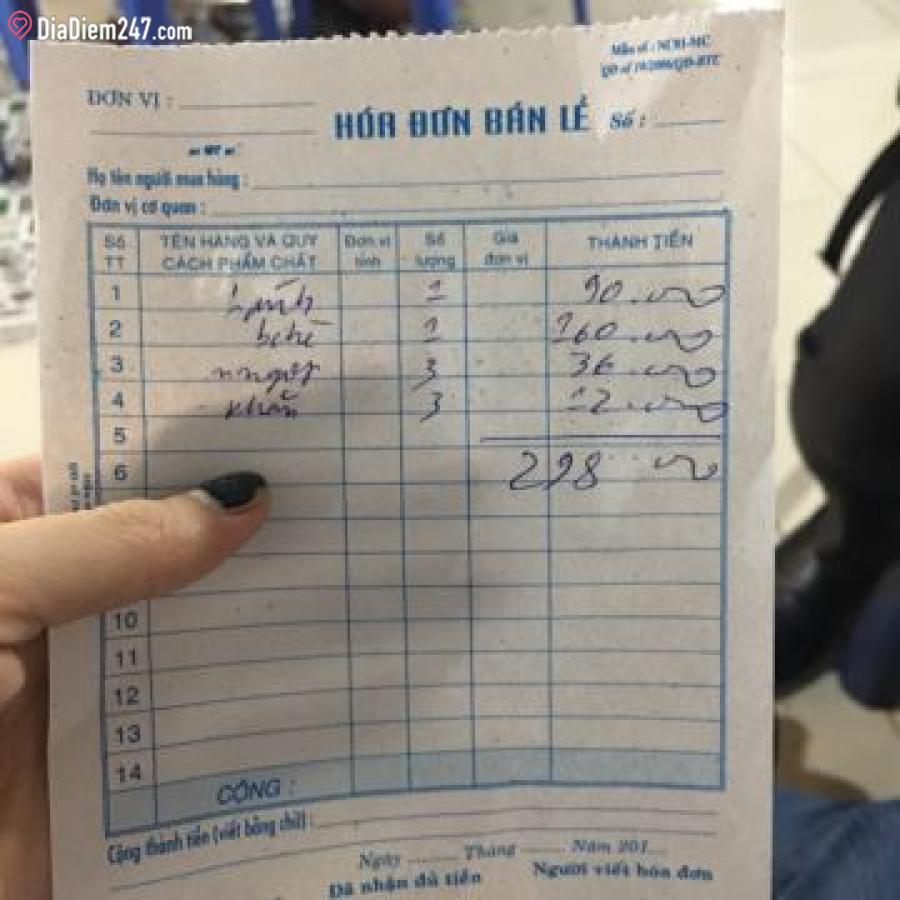 DiaDiem247.com
Mẫu số : NCH1-MC
QĐ số 19/2006/QĐ-BTC
ĐƠN VỊ :
HÓA ĐƠN BÁN LẺ Số :
Họ tên người mua hàng :
Đơn vị cơ quan :
Số TT TÊN HÀNG VÀ QUY CÁCH PHẨM CHẤT Đơn vị tính Số lượng Giá đơn vị THÀNH TIỀN
1 1 90.000
2 bê hè 1 160.000
3 n ngọt 3 36.000
4 khăn 3 12.000
5
6 298 000
10
11
12
13
14
CỘNG :
Cộng thành tiền (viết bằng chữ) :
Ngày ........ Tháng ........ Năm 201...
Đã nhận đủ tiền Người viết hóa đơn